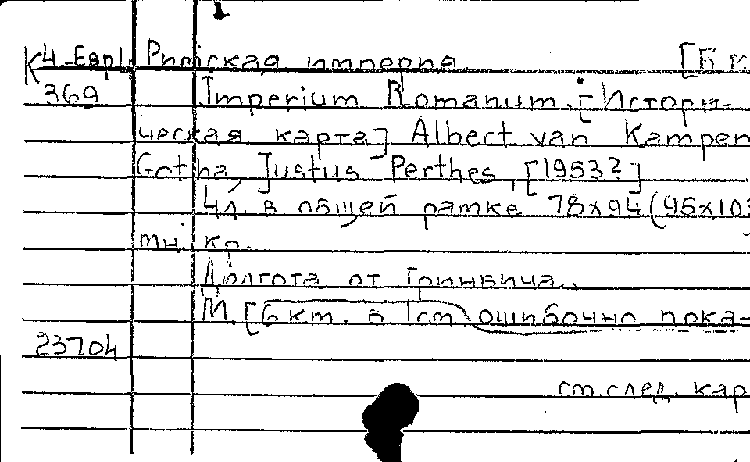 К4-Евр1 Римская империя. [Б.к
369 Imperium Romanum. [Истори-
ческая карта] Albert van Kampen
Gotha, Justus Perthes, [1953?]
4 л. в общей рамке 78х94 (95х103
мн. кр.
Долгота от Гринвича.
М. [6 км. в 1 см] ошибочно пока-
23704
см. след. кар